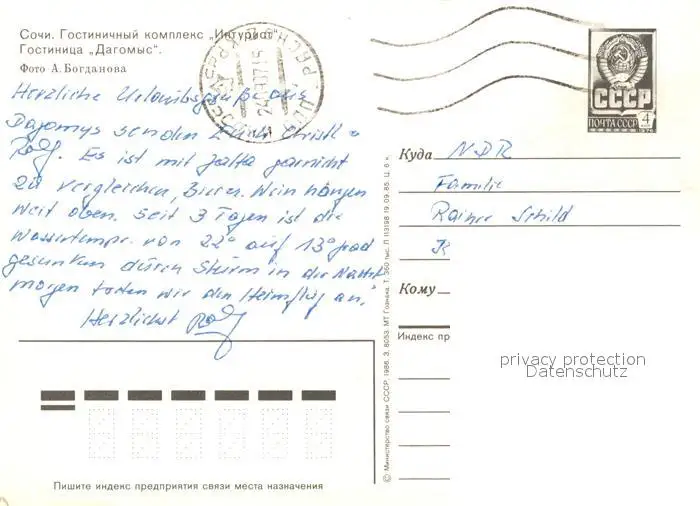 Сочи. Гостиничный комплекс „Интурист“
Гостиница „Дагомыс“.
Фото А. Богданова
Herzliche Urlaubsgrüße aus
Dagomys senden Euch Christl +
Rolf. Es ist mit Jalta garnicht
zu vergleichen, Bier u. Wein hängen
weit oben. Seit 3 Tagen ist die
Wassertemp. von 22° auf 13° grad
gesunken durch Sturm in der Nacht
morgen treten wir den Heimflug an.
Herzlichst Rolf
Пишите индекс предприятия связи места назначения
© Министерство связи СССР, 1986. З. 8053. МТ Гознака. Т. 360 тыс. Л 113198 19.09.85. Ц. 6 к.
СССР
ПОЧТА СССР
4
Куда NDR
Familie
Rainer Schild
Кому
Индекс пр
privacy protection
Datenschutz